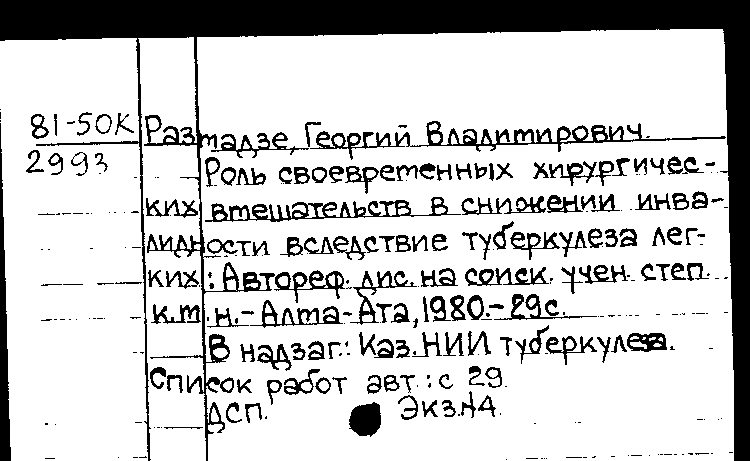 81-50К Размадзе, Георгий Владимирович.
2993 Роль своевременных хирургичес-
ких вмешательств в снижении инва-
лидности вследствие туберкулеза лег-
ких: Автореф. дис. на соиск. учен. степ.
к.м.н. - Алма-Ата, 1980. - 29с.
В надзаг.: Каз. НИИ туберкулеза.
Список работ авт.: с 29.
ДСП. Экз.№4.